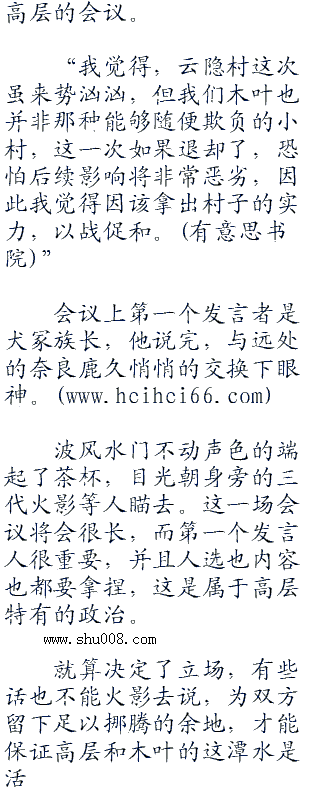 高层的会议。
“我觉得，云隐村这次
虽来势汹汹，但我们木叶也
并非那种能够随便欺负的小
村，这一次如果退却了，恐
怕后续影响将非常恶劣，因
此我觉得因该拿出村子的实
力，以战促和。(有意思书
院)”
会议上第一个发言者是
犬冢族长，他说完，与远处
的奈良鹿久悄悄的交换下眼
神。(www.hcihci66.com)
波风水门不动声色的端
起了茶杯，目光朝身旁的三
代火影等人瞄去。这一场会
议将会很长，而第一个发言
人很重要，并且人选也内容
也都要拿捏，这是属于高层
特有的政治。
www.shu008.com
就算决定了立场，有些
话也不能火影去说，为双方
留下足以挪腾的余地，才能
保证高层和木叶的这潭水是
活